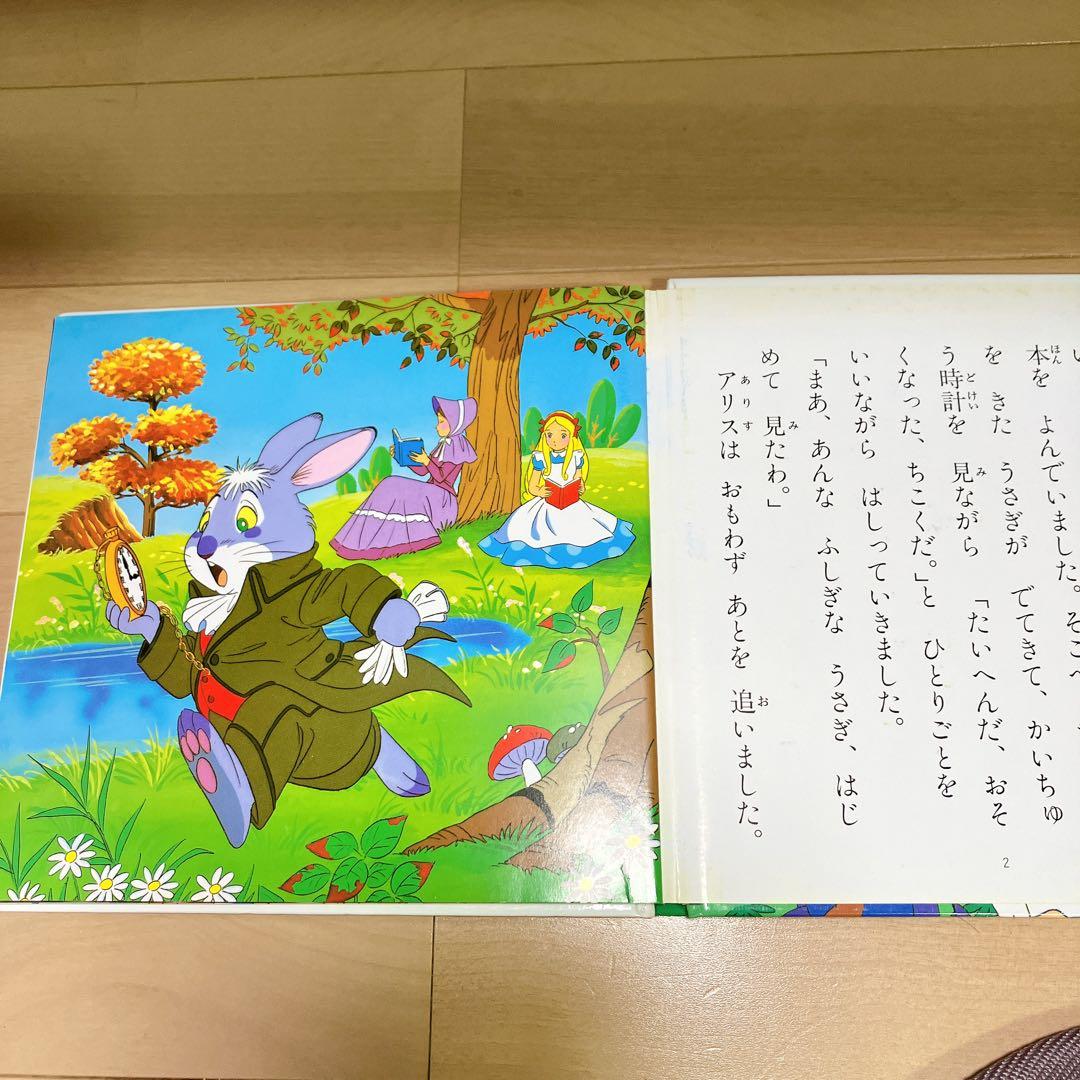 本を よんでいました。そこへ
を きた うさぎが でてきて、かいちゅ
う時計を 見ながら 「たいへんだ、おそ
くなった、ちこくだ。」と ひとりごとを
いいながら はしっていきました。
「まあ、あんな ふしぎな うさぎ、はじ
めて 見たわ。」
アリスは おもわず あとを 追いました。
2